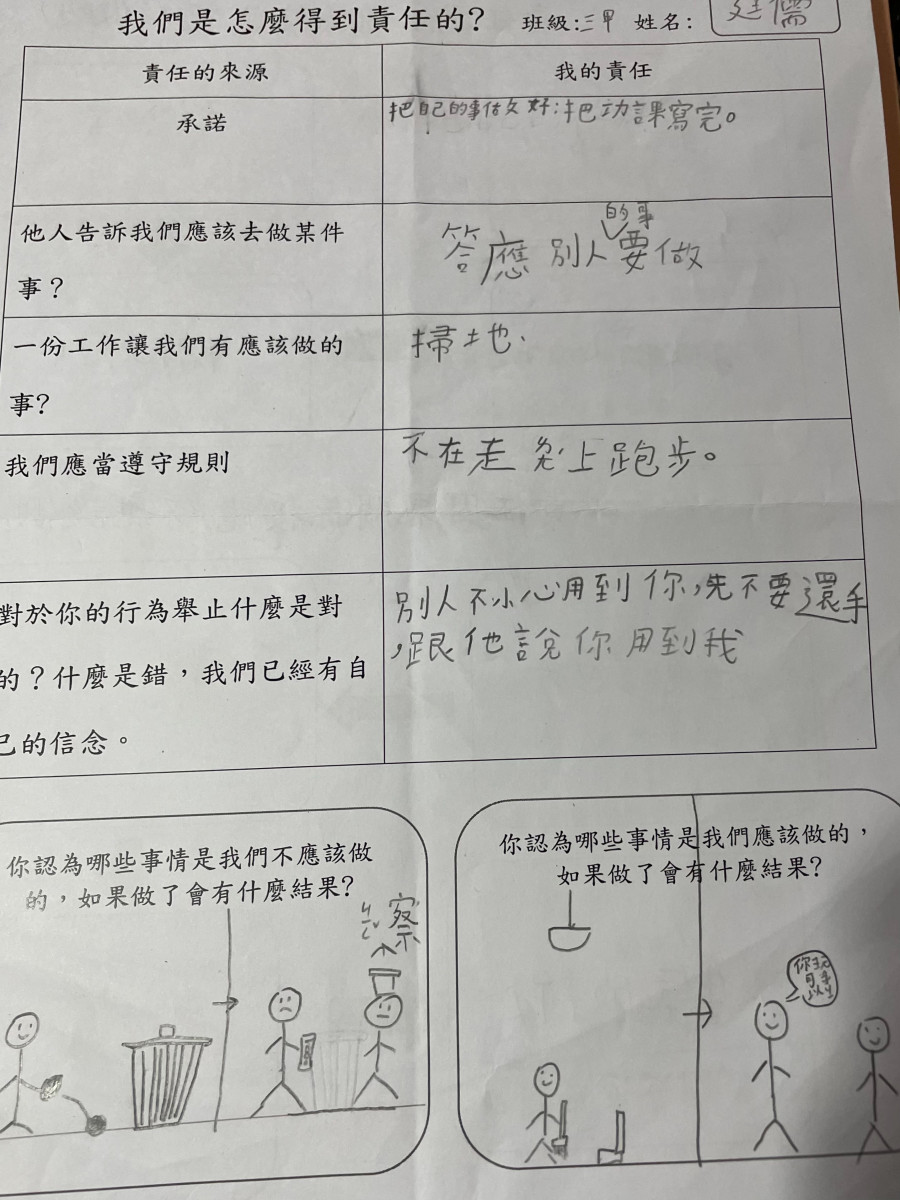 我們是怎麼得到責任的? 班級:三甲 姓名: 廷儒
責任的來源
我的責任
承諾
把自己的事做好:把功課寫完。
他人告訴我們應該去做某件
事?
的事
答應別人要做
一份工作讓我們有應該做的
事?
掃地.
我們應當遵守規則
不在走ㄌㄤˊ上跑步。
對於你的行為舉止什麼是對
的?什麼是錯,我們已經有自
己的信念。
別人不小心用到你,先不要還手
,跟他說你用到我
你認為哪些事情是我們不應該做
的,如果做了會有什麼結果?
ㄐㄧㄥˇ察
你認為哪些事情是我們應該做的,
如果做了會有什麼結果?
你可以玩